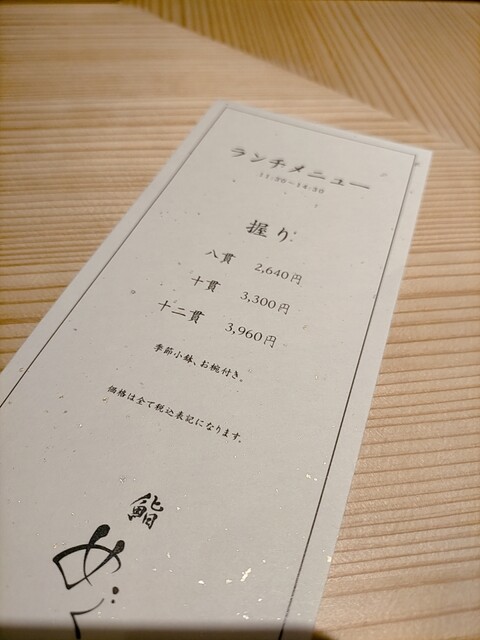 ランチメニュー
11:30~14:30
握り
八貫 2,640円
十貫 3,300円
十二貫 3,960円
季節小鉢、お椀付き。
価格は全て税込表記になります。
鮨
め